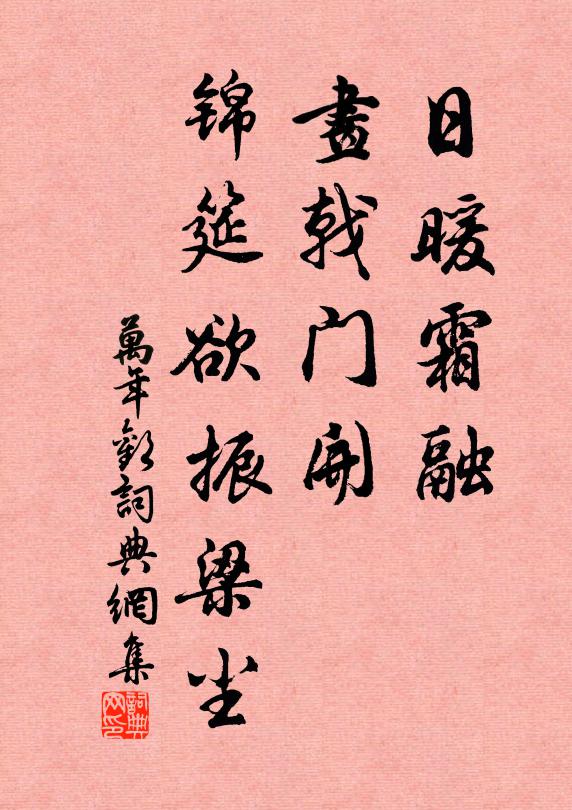 日暖霜融
畫戟门開
锦筵欲振梁尘
萬年歡詞典網集
詞典
网印